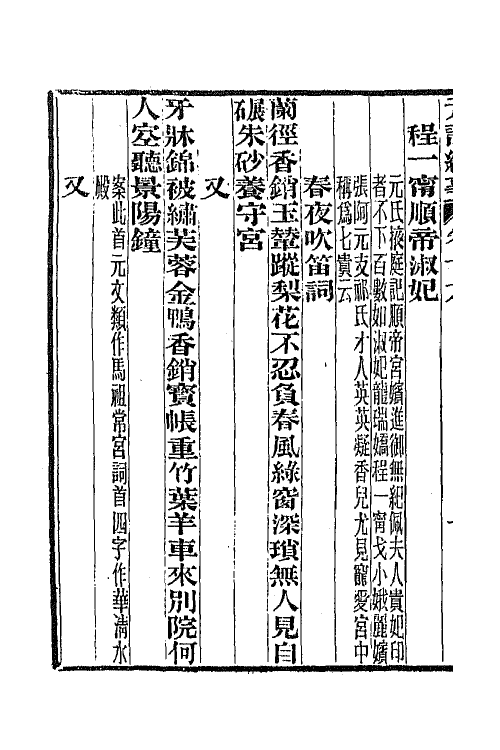 程一甯順帝淑妃
元氏掖庭記順帝宮嬪進御無紀佩夫人貴妃印
者不下百數如淑妃龍瑞嬌程一甯戈小娥麗嬪
張阿元支祁氏才人英英凝香兒尤見寵愛宮中
稱爲七貴云
春夜吹笛詞
蘭徑香銷玉輦蹤梨花不忍負春風綠窗深瑣無人見自
碾朱砂養守宮
又
牙牀錦被繡芙蓉金鴨香銷寶帳重竹葉羊車來別院何
人空聽景陽鐘
案此首元文類作馬祖常宮詞首四字作華淸水
殿
又